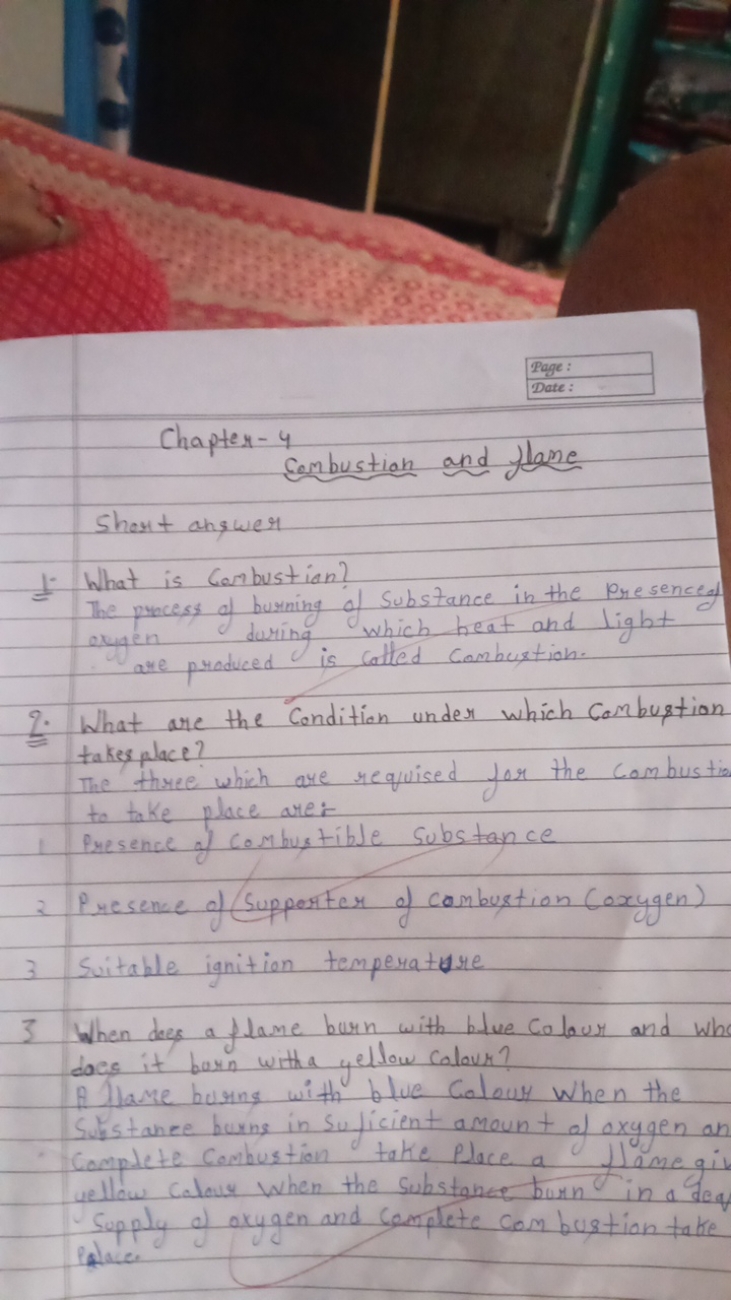 Page :
Date :
Chapter- 4
Combustion and flame
Short answer
1. What is Combustion?
The process of burning of Substance in the Presence of
oxygen during which heat and light
are produced is called Combustion.
2. What are the Condition under which Combustion
takes place?
The three which are requised for the Combustio
to take place are:-
1 Presence of Combustible Substance
2 Presence of Supporter of Combustion (oxygen)
3 Suitable ignition temperature
3 When does a flame burn with blue Colour and whe
does it burn with a yellow Colour?
A flame burns with blue Colour when the
Substance burns in suficient amount of oxygen an
Complete Combustion take Place a flame giv
yellow Colour when the Substance burn in a
Supply of oxygen and Complete Combustion take
Place.